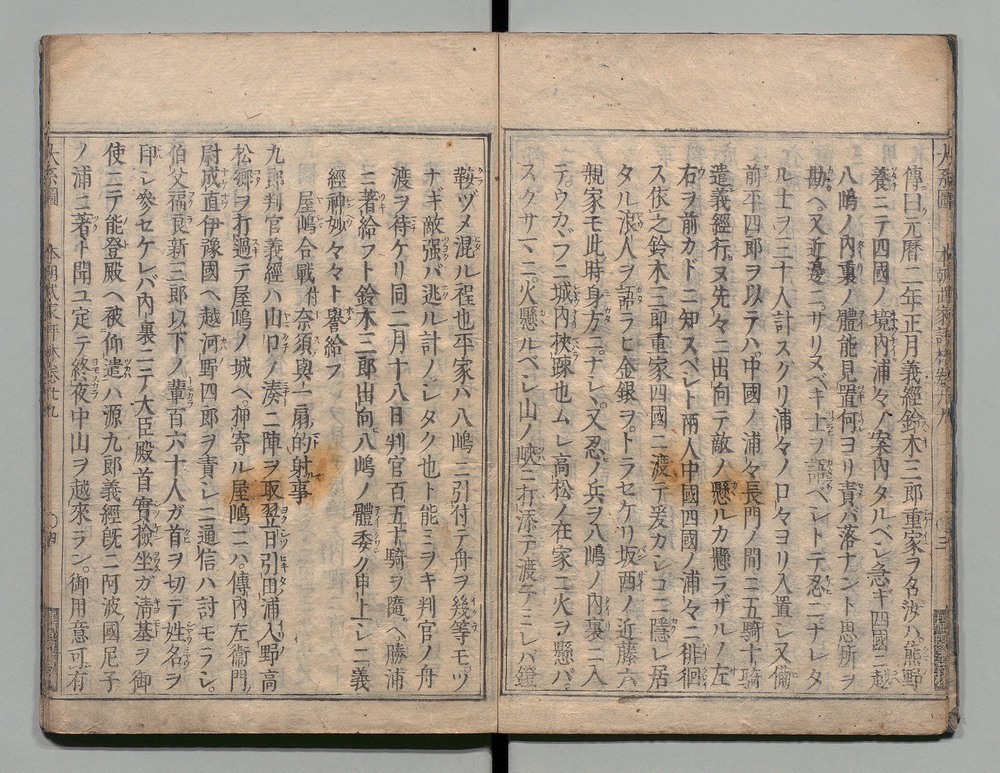 傳曰元暦二年正月義經鈴木三郎重家ヲ召汝ハ熊野
養ニテ四國ノ境内浦々ノ案内タルベシ急ギ四國ニ越
八嶋ノ内裏ノ體能見置何ヨリ責バ落ナント思所ヲ
勘ヘ又近邊ニサリヌベキ士ヲ語ベシトテ忍ニナレタ
ル士ヲ三十人計スグリ浦々ノ口々ヨリ入置シ又備
前平四郎ヲ以テハ中國ノ浦々長門ノ間ニ五騎十騎
遣義經行ヌ先々ニ出向テ敵ノ懸ルカ懸ラザルノ左
右ヲ前カドニ知スベシト兩人中國四國ノ浦々ニ徘徊
ス依之鈴木三郎重家四國ニ渡テ爰カシコニ隱レ居
タル浪人ヲ語ラヒ金銀ヲトラセケリ坂西ノ近藤六
親家モ此時身方ニナレ又忍ノ兵ヲ八嶋ノ内裏ニ入
テウカヾフニ城内狹疎也ムレ高松ノ在家ニ火ヲ懸バ
スグサマニ火懸ルベシ山ノ峽ニ打添テ渡テミレバ鐙
鞍ヅメ混ル程也平家ハ八嶋ニ引付テ舟ヲ幾等モツ
ナギ敵強バ逃ル計ノシタク也ト能ミヲキ判官ノ舟
渡ヲ待ケリ同二月十八日判官百五十騎ヲ隨ヘ勝浦
ニ著給フト鈴木三郎出向八嶋ノ體委ク申上シニ義
經神妙々々ト譽給フ
屋嶋合戰付奈須與一扇的射事
九郎判官義經ハ山口ノ湊ニ陣ヲ取翌日引田浦入野高
松郷ヲ打過テ屋嶋ノ城ヘ押寄ル屋嶋ニハ傳内左衞門
尉成直伊豫國ヘ越河野四郎ヲ責シニ通信ハ討モラシ
伯父福良新三郎以下ノ輩百六十人ガ首ヲ切テ姓名ヲ
印シ參セケレバ内裏ニテ大臣殿首實檢坐ガ清基ヲ御
使ニテ能登殿ヘ被仰遣ハ源九郎義經旣ニ阿波國尼子
ノ浦ニ著ト聞ユ定テ終夜中山ヲ越來ラン御用意可有